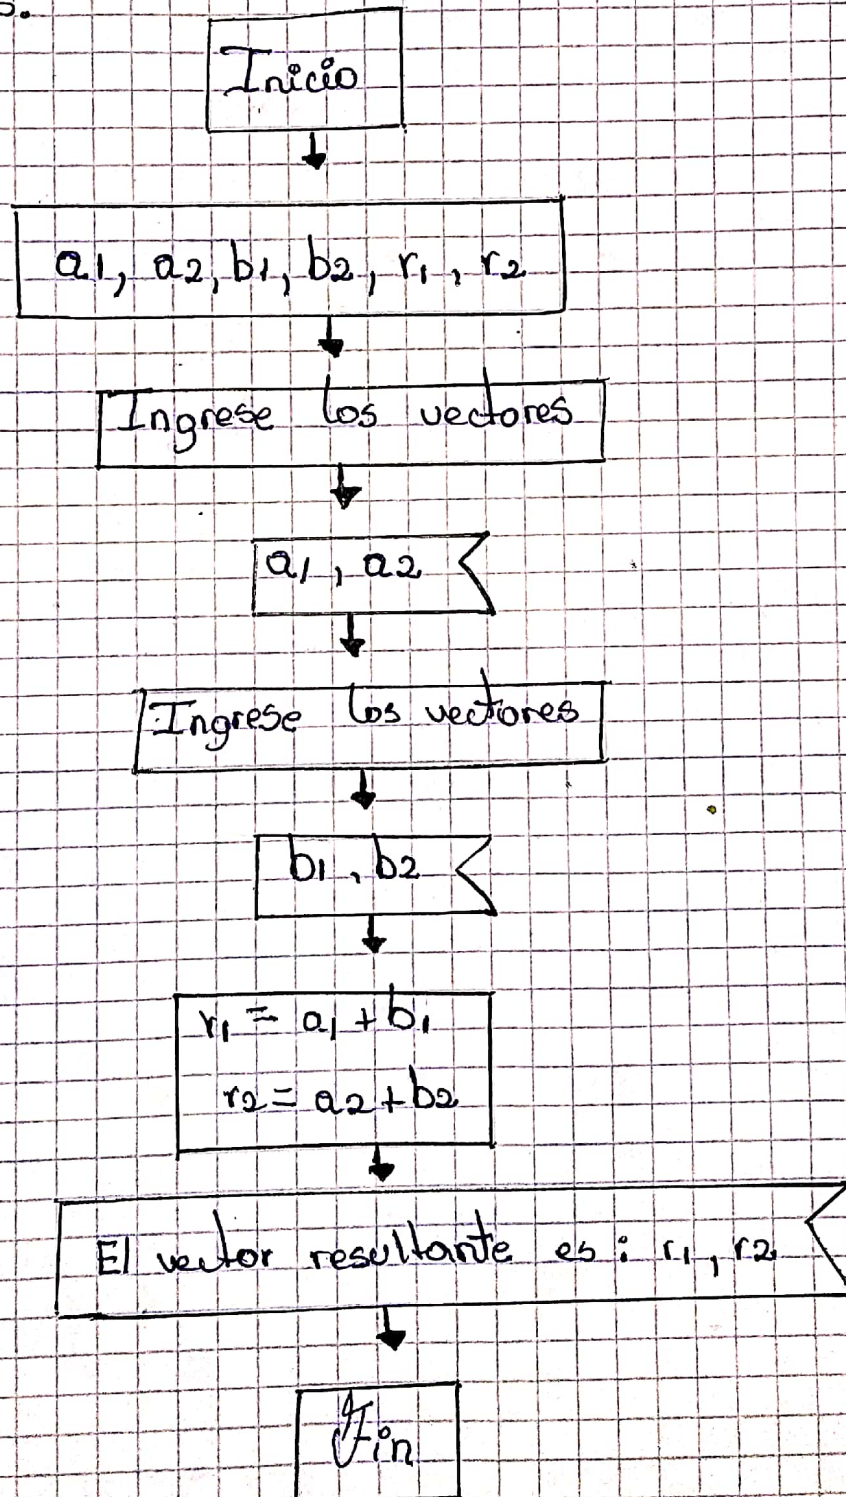 Inicio
a1, a2, b1, b2, r1, r2
Ingrese los vectores
a1, a2
Ingrese los vectores
b1, b2
r1 = a1 + b1
r2 = a2 + b2
El vector resultante es: r1, r2
Fin